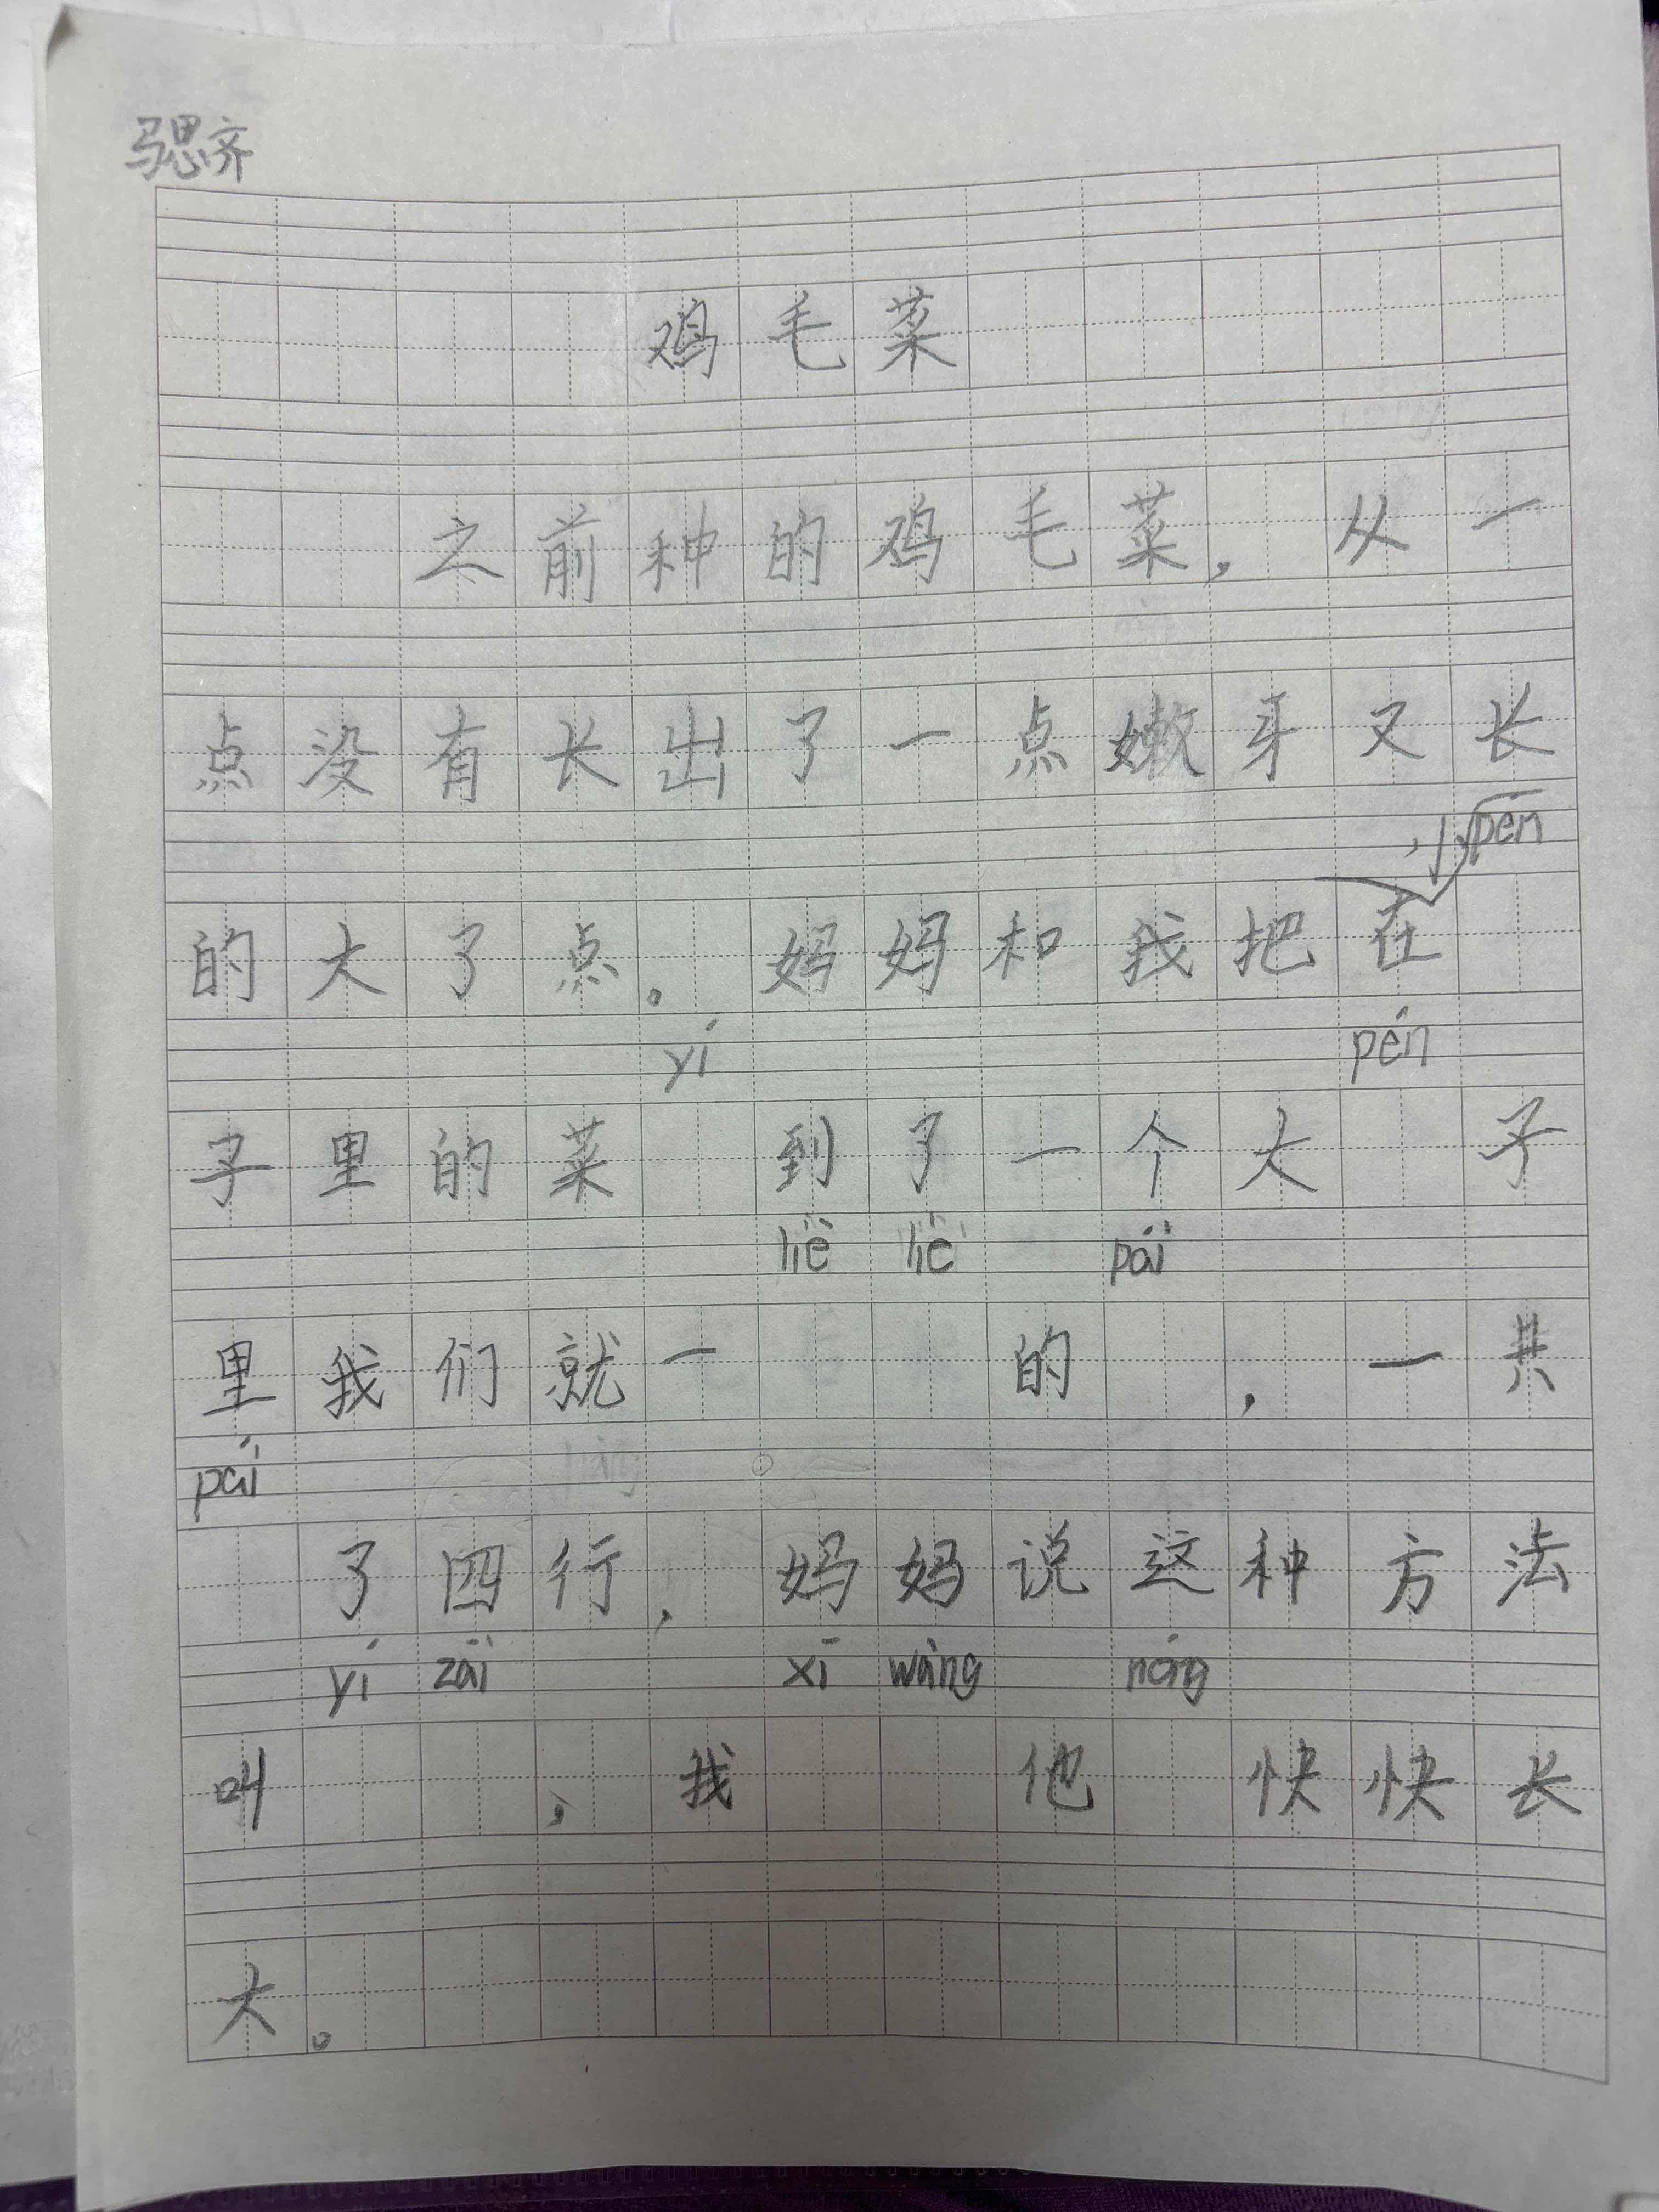 马思齐
鸡毛菜
之前种的鸡毛菜，从一
点没有长出了一点嫩牙又长
小pén
的大了点。妈妈和我把在
yí pén
子里的菜 到了一个大 子
liè liè pái
里我们就一 的 ，一共
pái
了四行，妈妈说这种方法
yí zāi xī wàng nóng
叫 ，我 他 快快长
大。